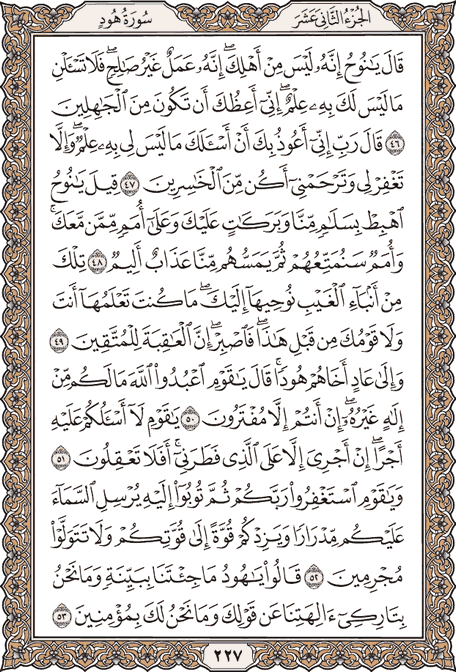 الجزء الثاني عشر
سورة هود
قَالَ يَٰنُوحُ إِنَّهُۥ لَيْسَ مِنْ أَهْلِكَ ۖ إِنَّهُۥ عَمَلٌ غَيْرُ صَٰلِحٍ ۖ فَلَا تَسْـَٔلْنِ
مَا لَيْسَ لَكَ بِهِۦ عِلْمٌ ۖ إِنِّىٓ أَعِظُكَ أَن تَكُونَ مِنَ ٱلْجَٰهِلِينَ
٤٦ قَالَ رَبِّ إِنِّىٓ أَعُوذُ بِكَ أَنْ أَسْـَٔلَكَ مَا لَيْسَ لِى بِهِۦ عِلْمٌ ۖ وَإِلَّا
تَغْفِرْ لِى وَتَرْحَمْنِىٓ أَكُن مِّنَ ٱلْخَٰسِرِينَ ٤٧ قِيلَ يَٰنُوحُ
ٱهْبِطْ بِسَلَٰمٍ مِّنَّا وَبَرَكَٰتٍ عَلَيْكَ وَعَلَىٰٓ أُمَمٍ مِّمَّن مَّعَكَ ۚ
وَأُمَمٌ سَنُمَتِّعُهُمْ ثُمَّ يَمَسُّهُم مِّنَّا عَذَابٌ أَلِيمٌ ٤٨ تِلْكَ
مِنْ أَنۢبَآءِ ٱلْغَيْبِ نُوحِيهَآ إِلَيْكَ ۖ مَا كُنتَ تَعْلَمُهَآ أَنتَ
وَلَا قَوْمُكَ مِن قَبْلِ هَٰذَا ۖ فَٱصْبِرْ ۖ إِنَّ ٱلْعَٰقِبَةَ لِلْمُتَّقِينَ ٤٩
وَإِلَىٰ عَادٍ أَخَاهُمْ هُودًا ۚ قَالَ يَٰقَوْمِ ٱعْبُدُوا۟ ٱللَّهَ مَا لَكُم مِّنْ
إِلَٰهٍ غَيْرُهُۥٓ ۖ إِنْ أَنتُمْ إِلَّا مُفْتَرُونَ ٥٠ يَٰقَوْمِ لَآ أَسْـَٔلُكُمْ عَلَيْهِ
أَجْرًا ۖ إِنْ أَجْرِىَ إِلَّا عَلَى ٱلَّذِى فَطَرَنِىٓ ۚ أَفَلَا تَعْقِلُونَ ٥١
وَيَٰقَوْمِ ٱسْتَغْفِرُوا۟ رَبَّكُمْ ثُمَّ تُوبُوٓا۟ إِلَيْهِ يُرْسِلِ ٱلسَّمَآءَ
عَلَيْكُم مِّدْرَارًا وَيَزِدْكُمْ قُوَّةً إِلَىٰ قُوَّتِكُمْ وَلَا تَتَوَلَّوْا۟
مُجْرِمِينَ ٥٢ قَالُوا۟ يَٰهُودُ مَا جِئْتَنَا بِبَيِّنَةٍ وَمَا نَحْنُ
بِتَارِكِىٓ ءَالِهَتِنَا عَن قَوْلِكَ وَمَا نَحْنُ لَكَ بِمُؤْمِنِينَ ٥٣
٢٢٧